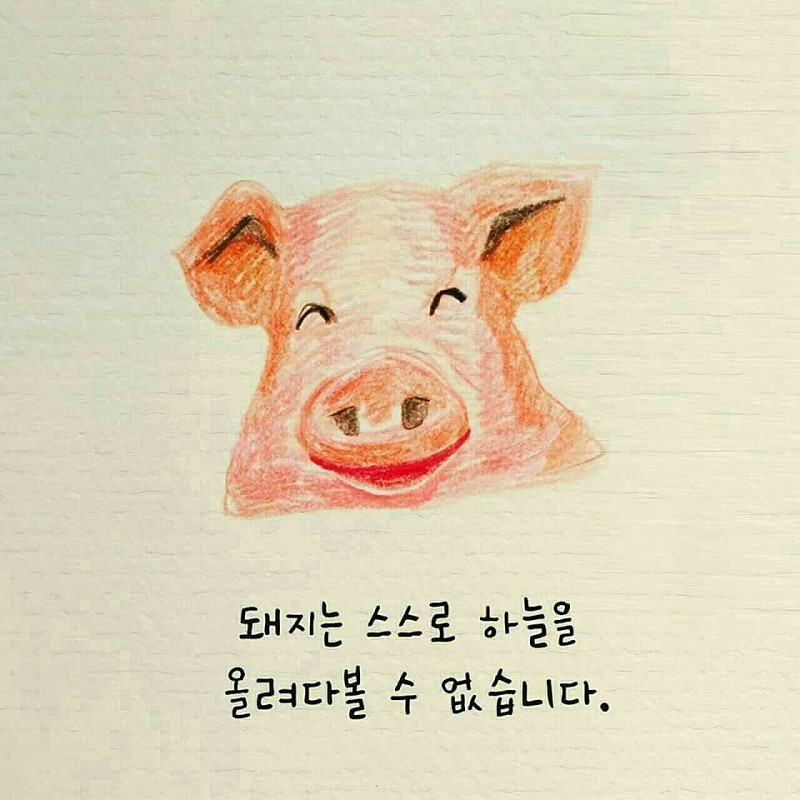 돼지는 스스로 하늘을
올려다볼 수 없습니다.